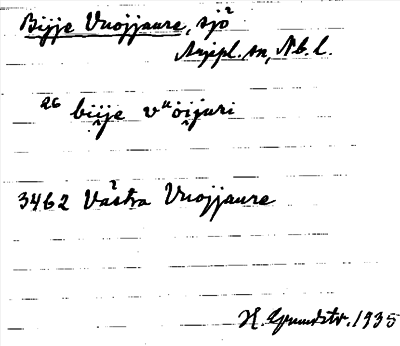 Bijje Vuojjaure, sjö
Arjepl. sn, Nb. l.
26 bii̯je vᵘöi̯juri
3462 Västra Vuojjaure
H. Grundstr. 1935